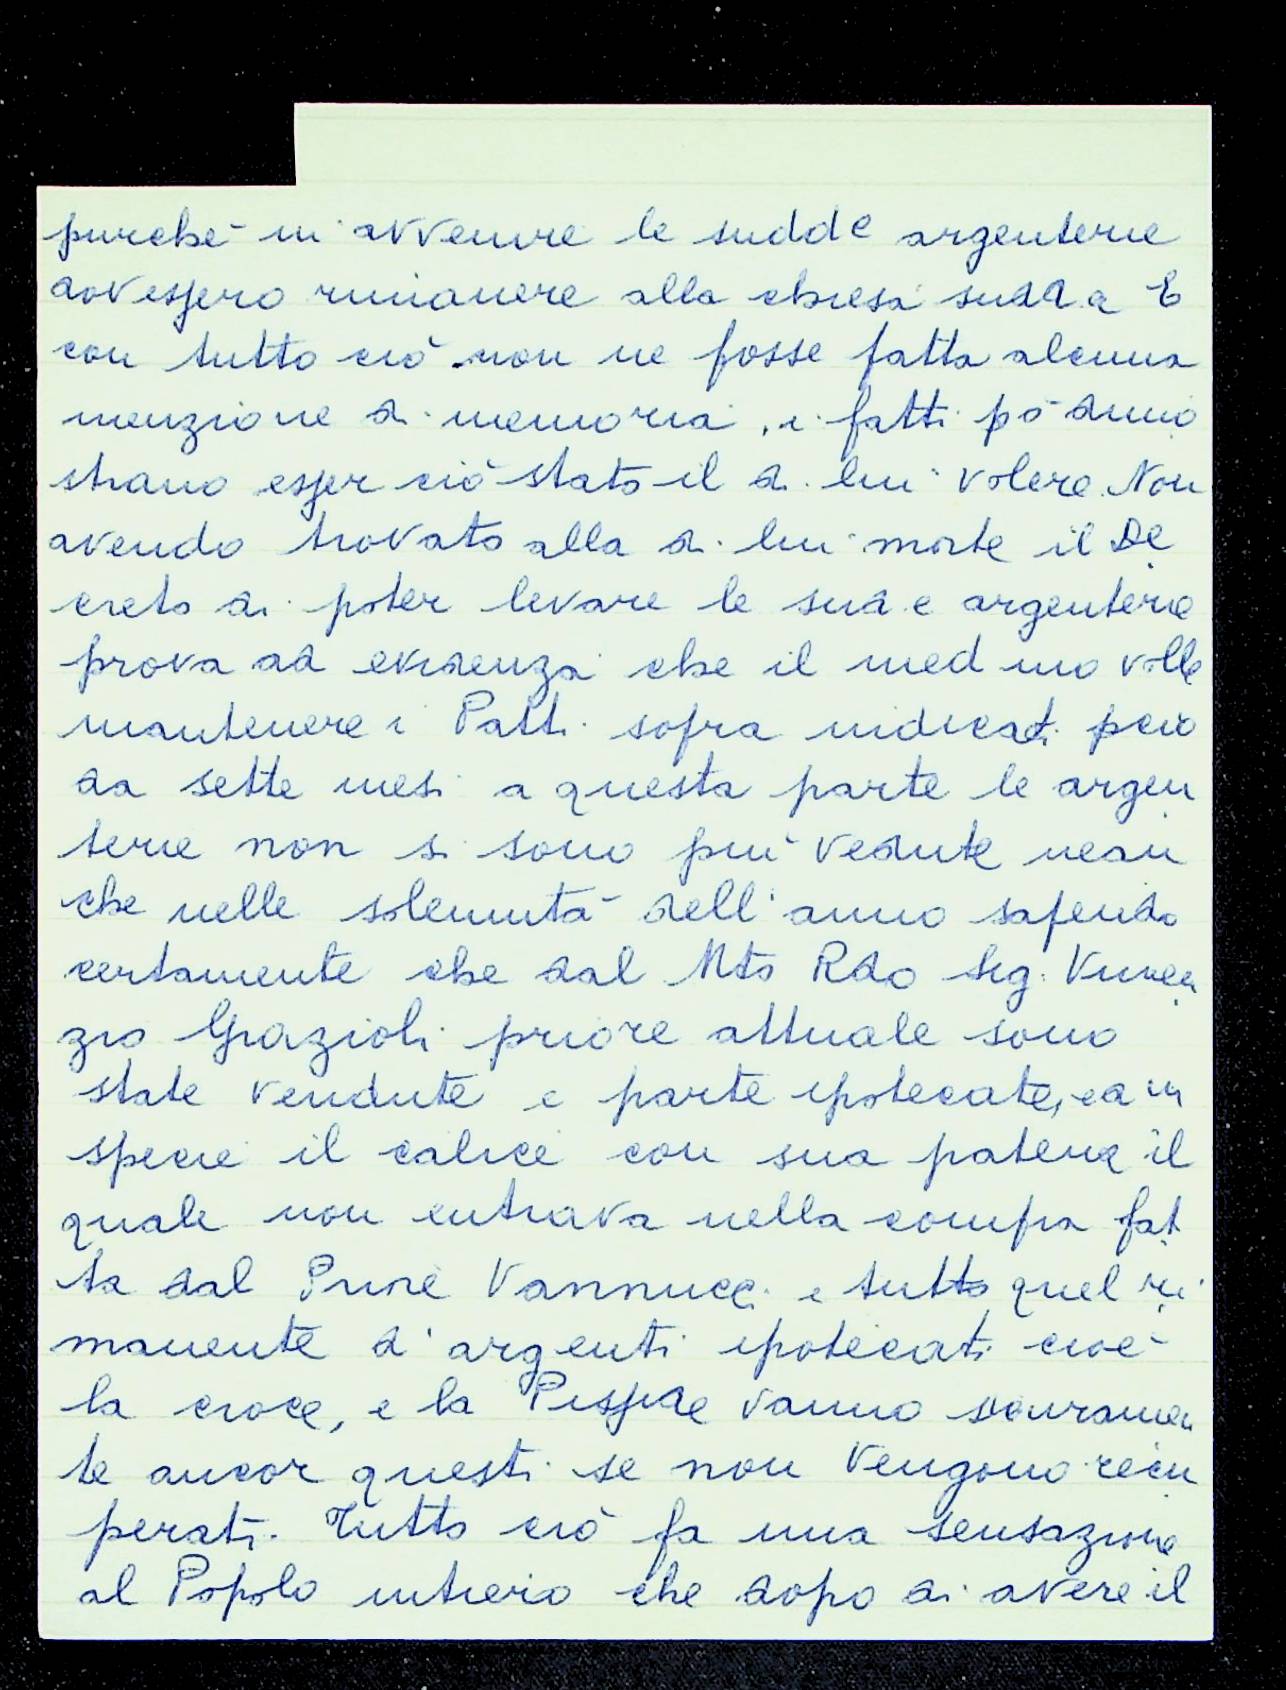 purché in avvenire le sudd e argenterie
dovessero rimanere alla chiesa sudd.a E
con tutto ciò non ne fosse fatta alcuna
menzione di memoria, i fatti pò dimo
strano esser ciò stato il di lui volere. Non
avendo trovato alla di lui morte il De
creto di poter levare le sud e argenterie
prova ad evidenza che il med mo volle
mantenere i Patti sopra indicati però
da sette mesi a questa parte le argen
terie non si sono più vedute nean
che nelle solennità dell'anno sapendo
certamente che dal Mto Rdo Sig. Vincen
zio Grazioli priore attuale sono
state vendute e parte ipotecate, ed in
specie il calice con sua patena il
quale non entrava nella compra fat
ta dal Priore Vannucci e tutto quel ri
manente d'argenti ipotecati cioè
la croce, e la Pisside vanno sicuramen
te ancor questi se non vengono recu
perati. Tutto ciò fa una sensazione
al Popolo intiero che dopo di avere il